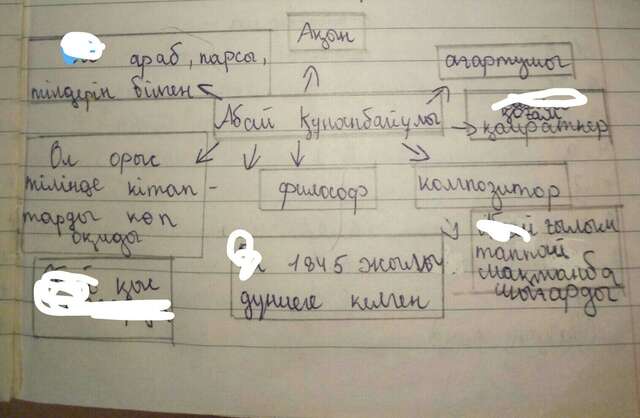 Ақын
араб, парсы,
тілдерін білген
ағартушы
Абай Құнанбайұлы
қоғам
қайраткер
Ол орыс
тілінде кітап -
тарды көп
оқиды
философ
композитор
1845 жылы
дүниеге келген
ғылым
таппай
мақтанба
шығарды
қыс